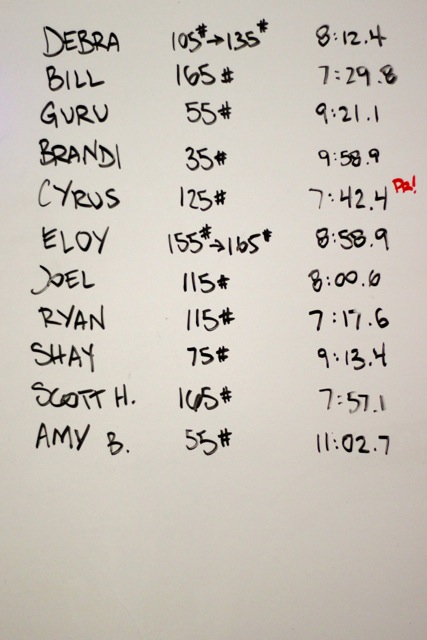 DEBRA 105#→135# 8:12.4
BILL 165# 7:29.8
GURU 55# 9:21.1
BRANDI 35# 9:58.9
CYRUS 125# 7:42.4 PR!
ELOY 155#→165# 8:58.9
JOEL 115# 8:00.6
RYAN 115# 7:17.6
SHAY 75# 9:13.4
SCOTT H. 165# 7:57.1
AMY B. 55# 11:02.7